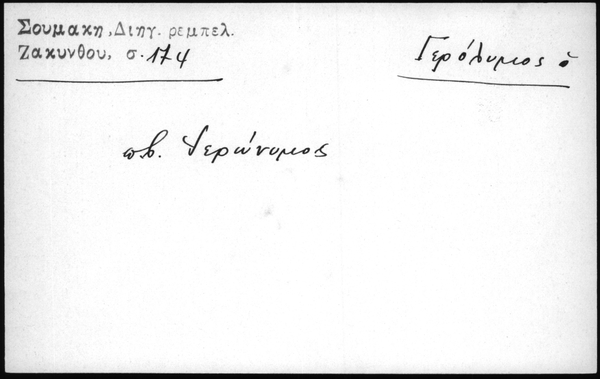 Σουμακη, Διηγ. ρεμπελ.
Ζακυνθου, σ. 174
Γερόλυμος ὁ
πβ. Ἱερώνυμος